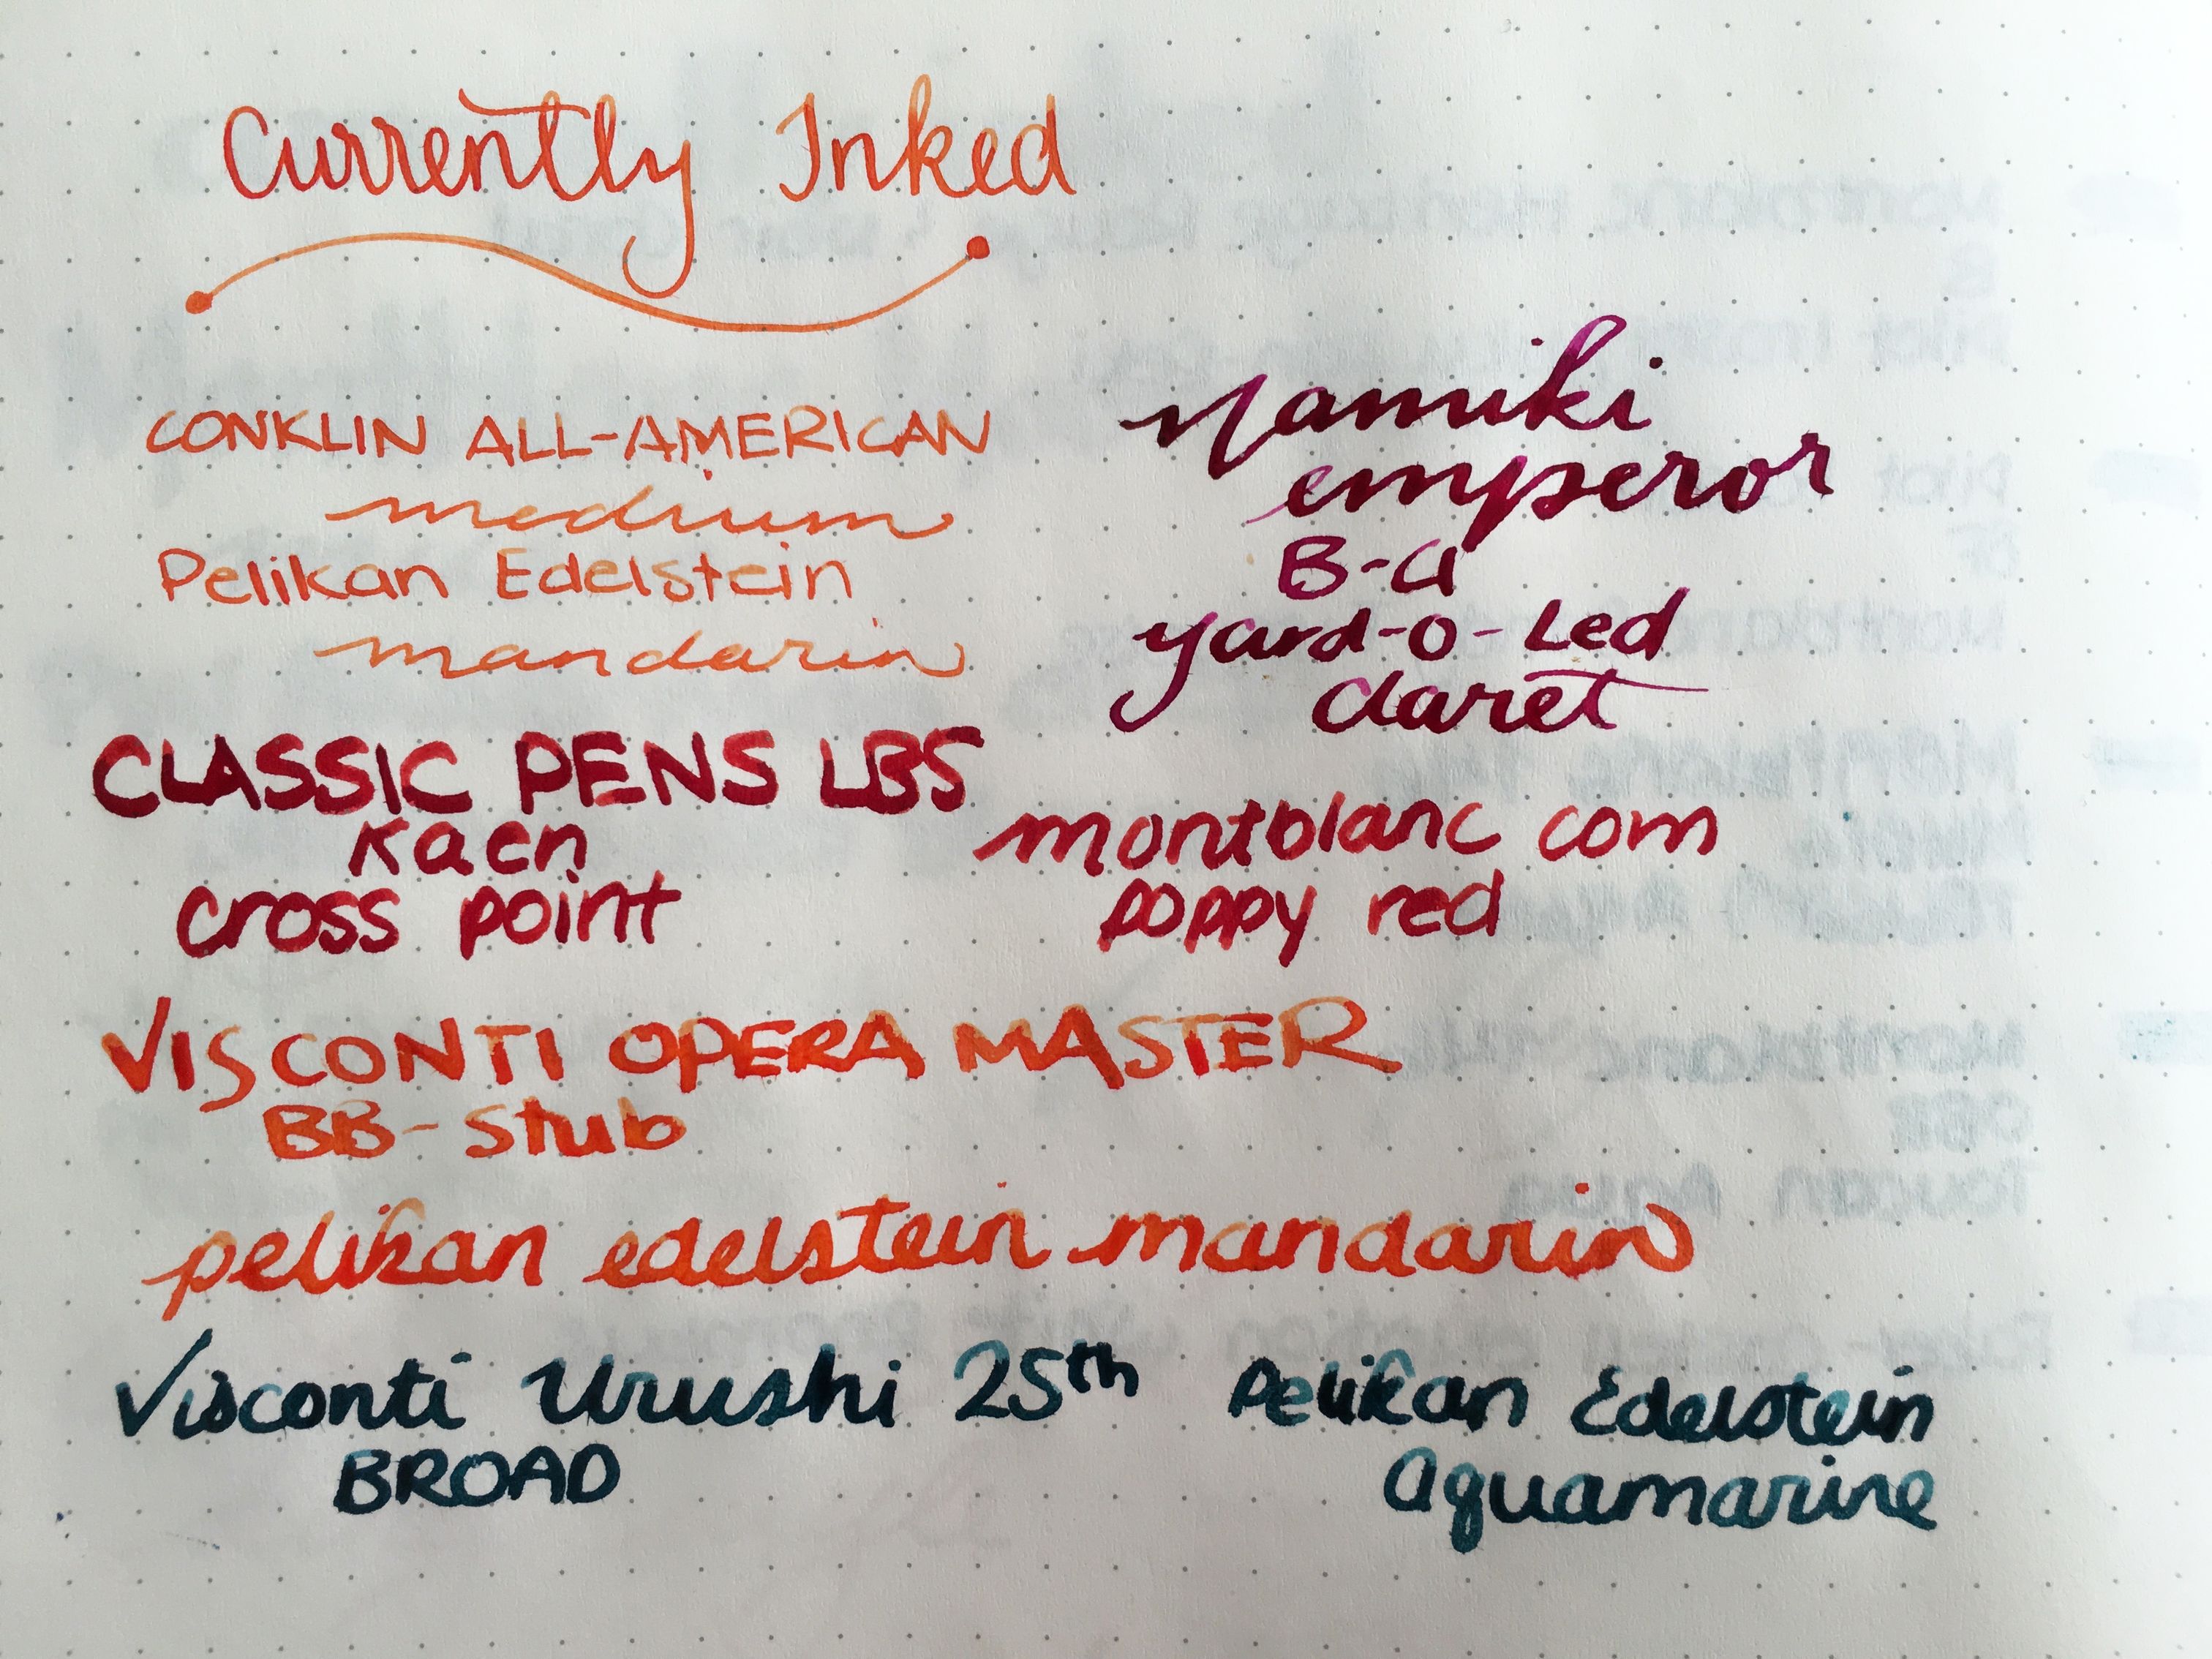 Currently Inked
CONKLIN ALL-AMERICAN
medium
Pelikan Edelstein
mandarin
Namiki
emperor
B-CI
yard-o-Led
claret
CLASSIC PENS LB5
Kaen
cross point
montblanc com
poppy red
VISCONTI OPERA MASTER
BB-Stub
pelikan edelstein mandarin
Visconti Urushi 25th
BROAD
Pelikan Edelstein
Aquamarine